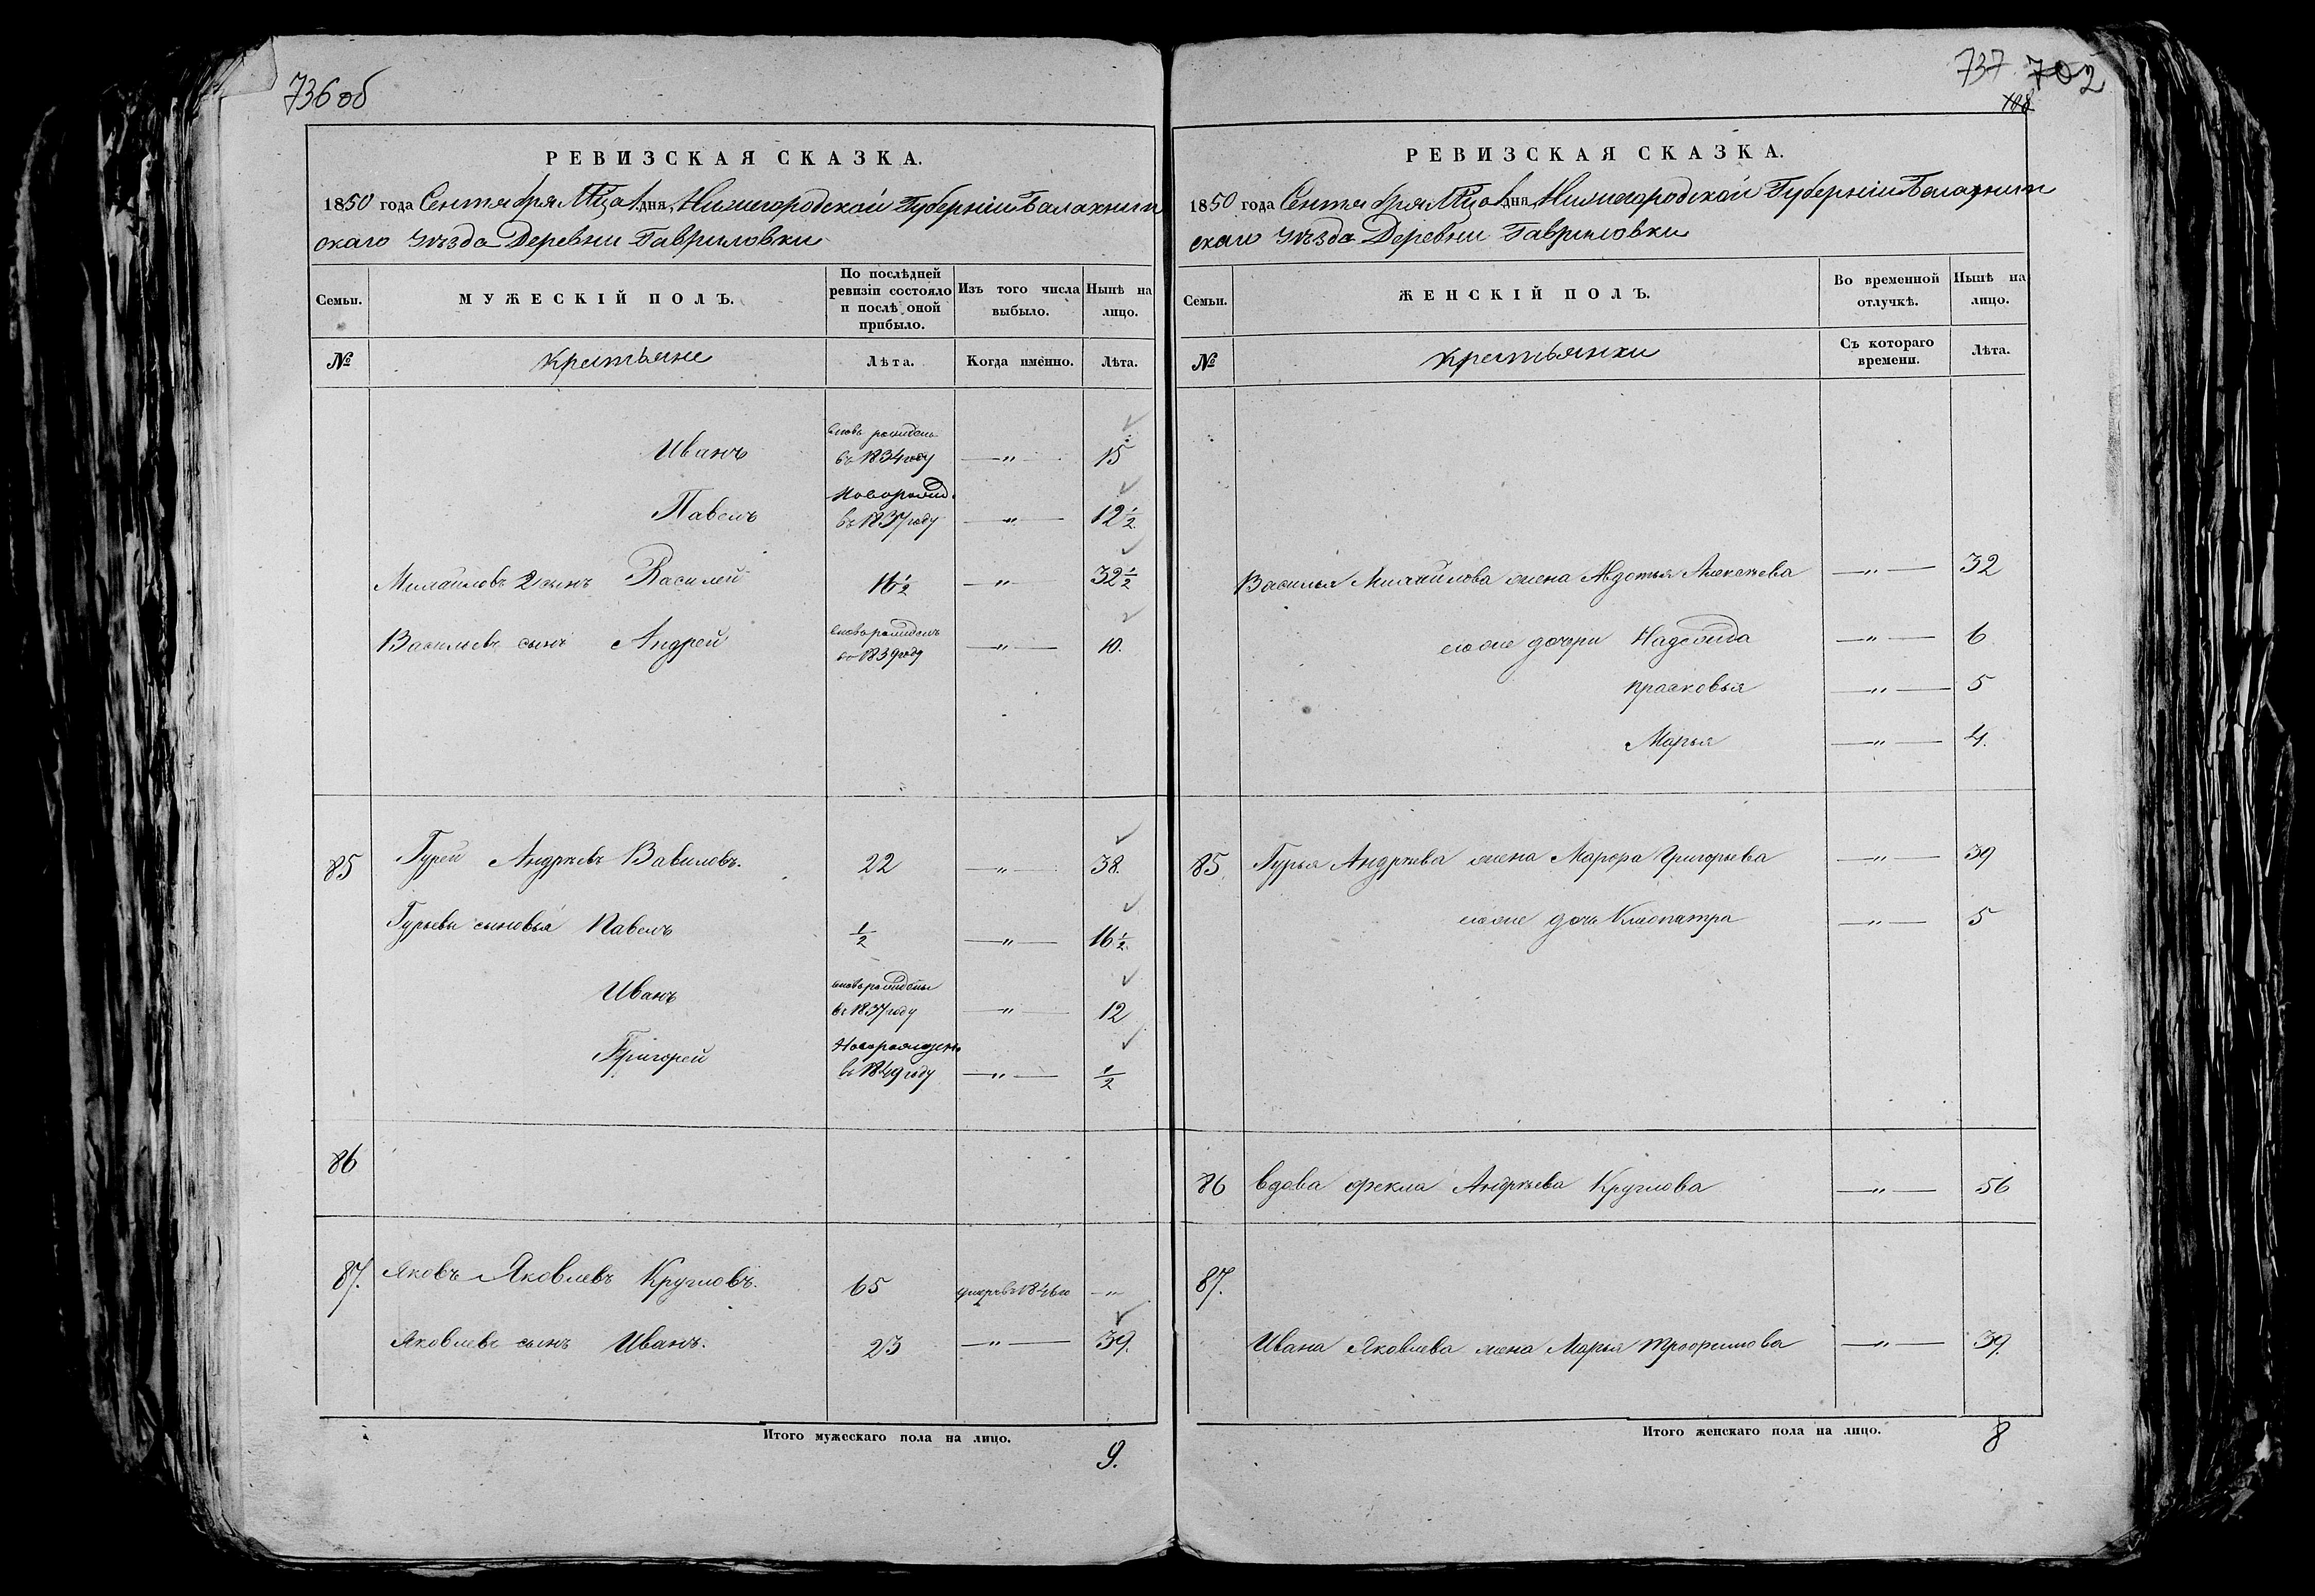 736 об
РЕВИЗСКАЯ СКАЗКА.
1850 года Сентября Мца 1 дня, Нижегородской Губерніи Балахнин
скаго Уѣзда Деревни Гавриловки
Семьи.
МУЖЕСКІЙ ПОЛЪ.
По послѣдней
ревизіи состояло
и послѣ оной
прибыло.
Изъ того числа
выбыло.
Нынѣ на
лицо.
№
Крестьяне
Лѣта.
Когда именно.
Лѣта.
Иванъ вновь рожденъ въ 1834 году —"— 15
Павелъ Новорожд. въ 1837 году —"— 12 1/2
Михайловъ 2 сынъ Василей 16 1/2 —"— 32 1/2
Васильевъ сынъ Андрей вновь рожденъ въ 1839 году —"— 10.
85 Гурей Андреевъ Вавиловъ. 22 —"— 38.
Гурьевы сыновья Павелъ 1/2 —"— 16 1/2
Иванъ вновь рожденъ въ 1837 году —"— 12
Григорей Новорожден. въ 1849 году —"— 1/2
86
87. Яковъ Яковлевъ Кругловъ. 65 —"—
Яковлевъ сынъ Иванъ. 23 —"— 39.
Итого мужескаго пола на лицо. 9.
737 702
188
РЕВИЗСКАЯ СКАЗКА.
1850 года Сентября Мца 1 дня, Нижегородской Губерніи Балахнин
скаго Уѣзда Деревни Гавриловки
Семьи.
ЖЕНСКІЙ ПОЛЪ.
Во временной
отлучкѣ.
Нынѣ на
лицо.
№
Крестьянки
Съ котораго
времени.
Лѣта.
Василья Михайлова жена Авдотья Алексеева —"— 32
его же дочери Надежда —"— 6
Прасковья —"— 5
Марья —"— 4.
85 Гурья Андреева жена Марфа Григорьева —"— 39
его же дочь Клеопатра —"— 5
86 вдова Фекла Андреева Круглова —"— 56
87.
Ивана Яковлева жена Марья Трофимова —"— 39.
Итого женскаго пола на лицо. 8